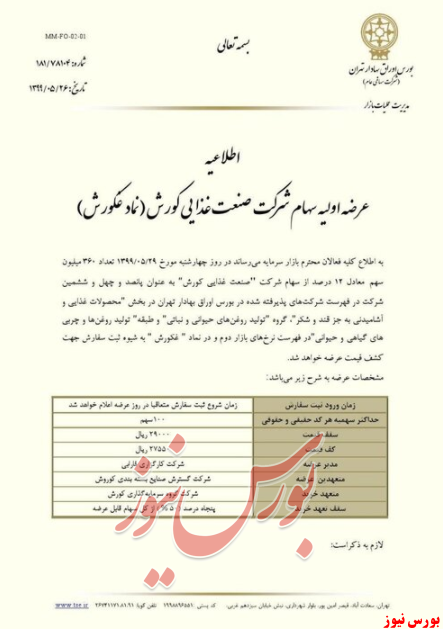 بسمه تعالی
MM-FO-01-01
شماره: ۱۸۱/۷۸۱۰۴
تاریخ: ۱۳۹۹/۰۵/۲۶
بورس اوراق بهادار تهران
(شرکت سهامی عام)
مدیریت عملیات بازار
اطلاعیه
عرضه اولیه سهام شرکت صنعت غذایی کورش (نماد غکورش)
به اطلاع کلیه فعالان محترم بازار سرمایه می‌رساند در روز چهارشنبه مورخ ۱۳۹۹/۰۵/۲۹ تعداد ۳۶۰ میلیون
سهم معادل ۱۲ درصد از سهام شرکت "صنعت غذایی کورش" به عنوان پانصد و چهل و ششمین
شرکت در فهرست شرکت‌های پذیرفته شده در بورس اوراق بهادار تهران در بخش "محصولات غذایی و
آشامیدنی به جز قند و شکر"، گروه "تولید روغن‌های حیوانی و نباتی" و طبقه" تولید روغن‌ها و چربی
های گیاهی و حیوانی"در فهرست نرخ‌های بازار دوم و در نماد " غکورش " به شیوه ثبت سفارش جهت
کشف قیمت عرضه خواهد شد.
مشخصات عرضه به شرح زیر می‌باشد:
زمان ورود ثبت سفارش زمان شروع ثبت سفارش متعاقبا در روز عرضه اعلام خواهد شد
حداکثر سهمیه هر کد حقیقی و حقوقی ۱۰۰سهم
سقف قیمت ۲۹۰۰۰ ریال
کف قیمت ۲۷۵۵۰ ریال
مدیر عرضه شرکت کارگزاری فارابی
متعهدین عرضه شرکت گسترش صنایع بسته بندی کوروش
متعهد خرید شرکت گروه سرمایه‌گذاری کورش
سقف تعهد خرید پنجاه درصد (۵۰%) از کل سهام قابل عرضه
لازم به ذکراست:
بورس نیوز
تهران، سعادت آباد، قیصر امین پور، بلوار شهرداری، نبش خیابان سیزدهم غربی، کد پستی: ۱۹۹۸۸۹۶۸۸۱ تلفن گویا: www.tse.ir
بورس نیوز